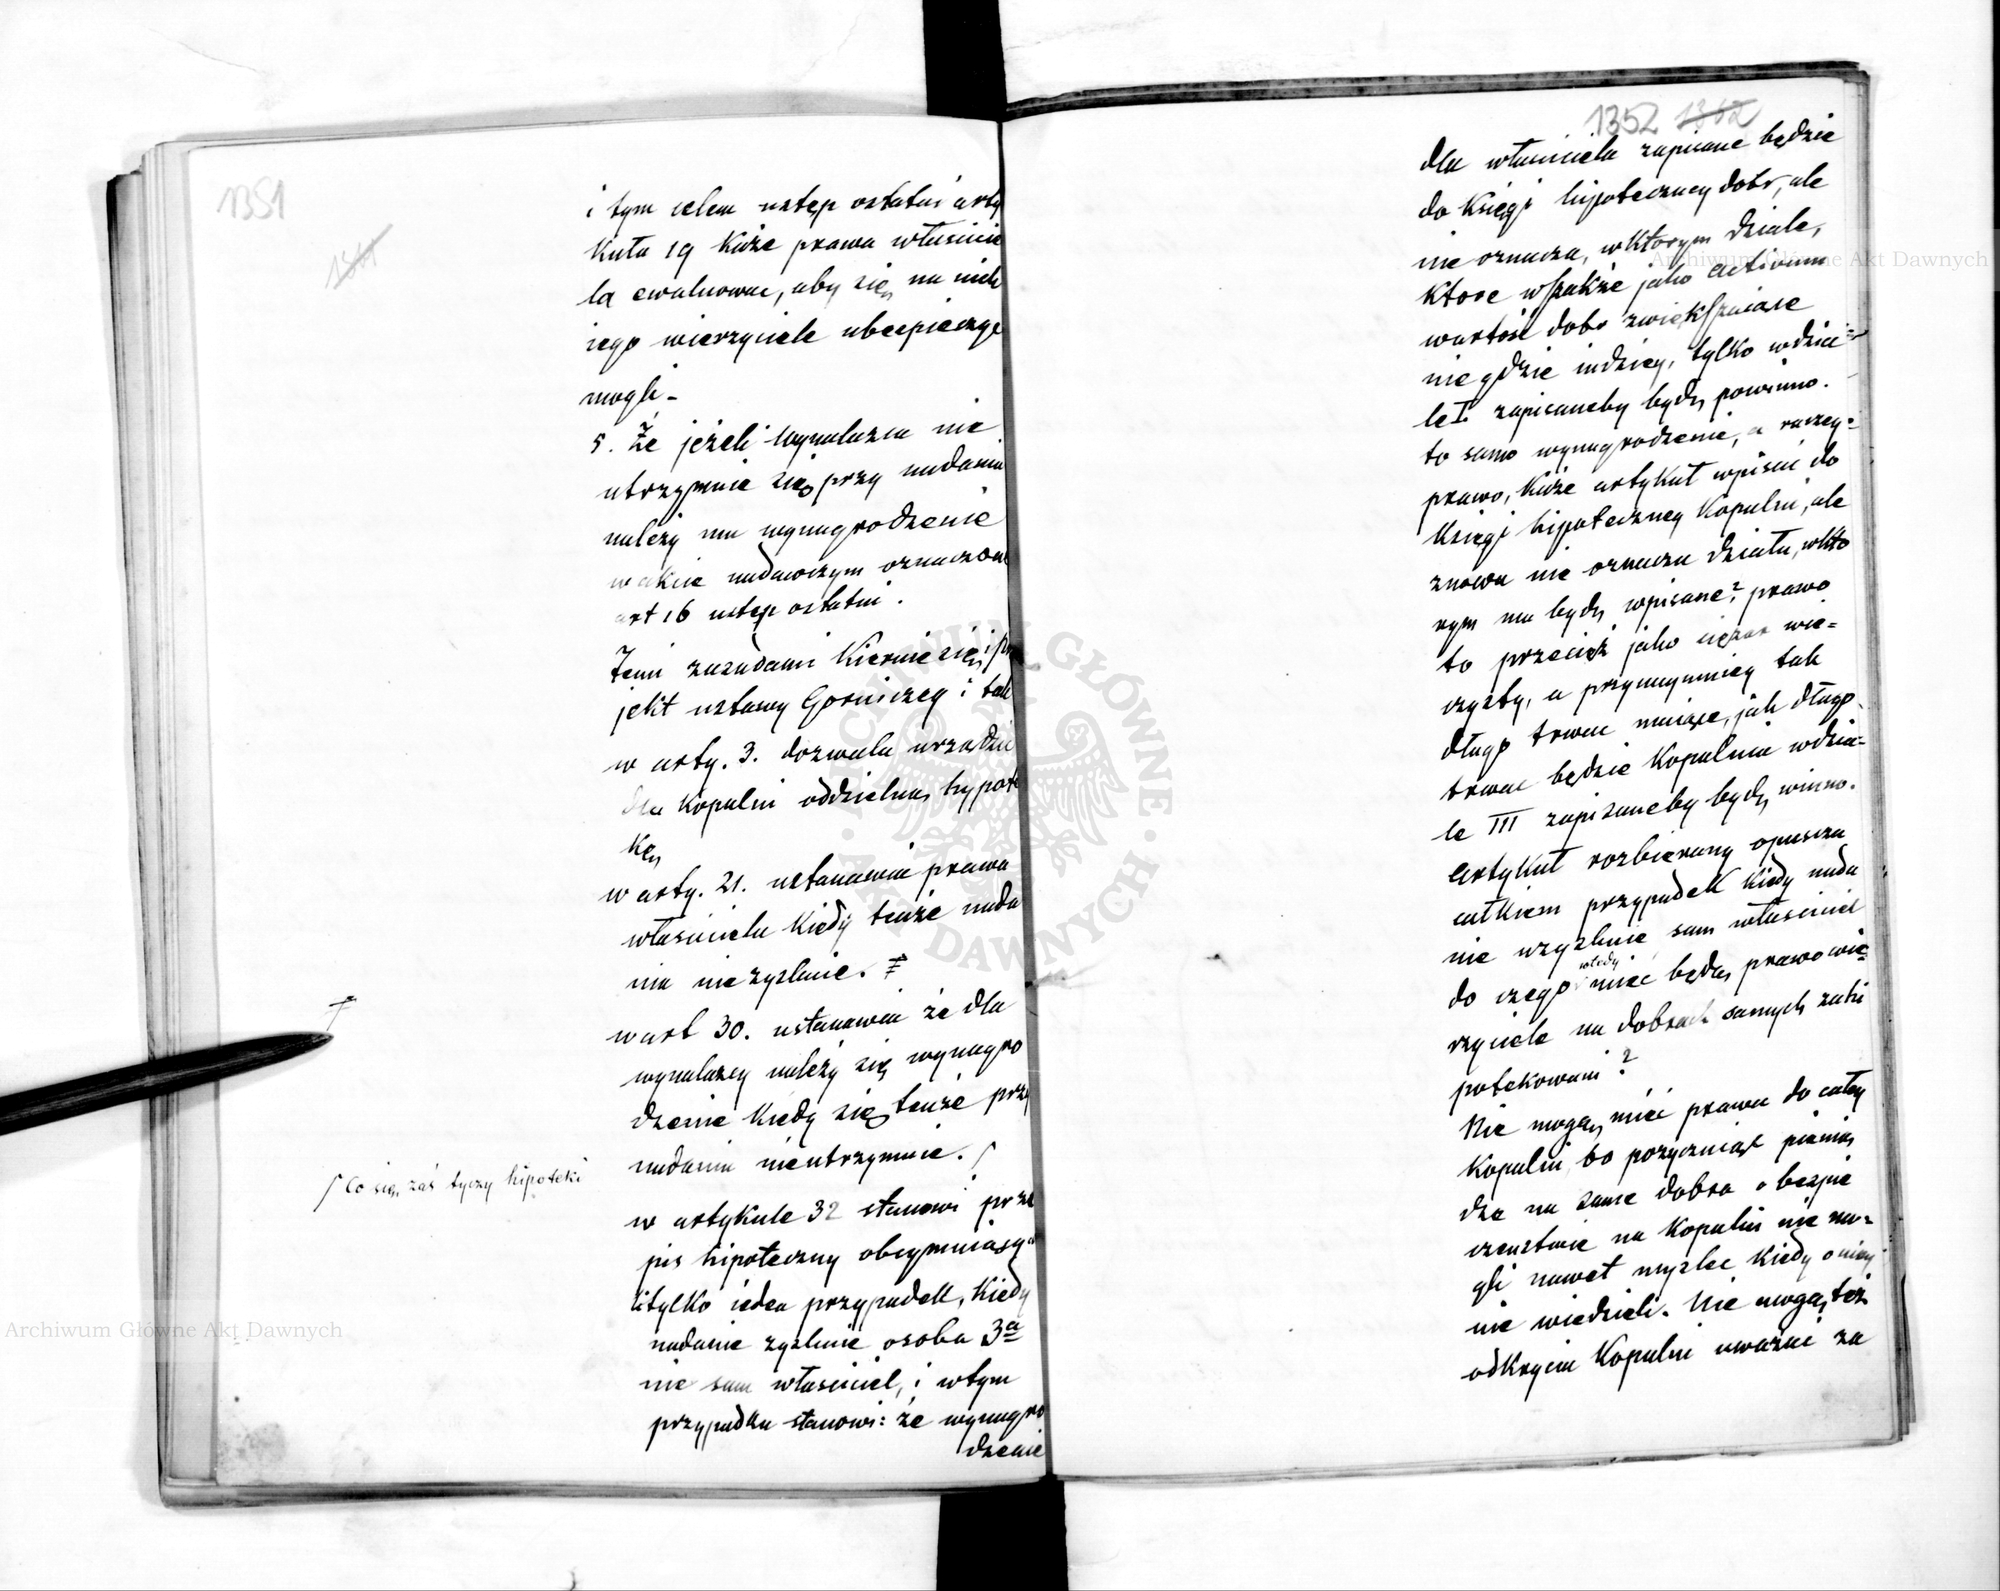 1351
1341
i tym celem ustęp ostatni arty
kuła 19 każe prawa właścicie
la ewaluować, aby się na nich
jego wierzyciele ubezpieczyć
mogli -
5. Że jeżeli wynalazca nie
utrzymuie się przy nadaniu
należy mu wynagrodzenie
w akcie nadawczym oznaczone
art 16 ustęp ostatni.
Temi zasadami kieruie się i pro
jekt ustawy Górniczey i tak
w arty. 3. dozwala urządzić
dla kopalni oddzielną hypote
kę
w arty. 21. ustanawia prawa
właściciela kiedy tenże nada
nia nie zyskuie. ⧧
w art 30. ustanawia że dla
wynalazcy należy się wynagro
dzenie kiedy się tenże przy
nadaniu nieutrzymuie. ʃ
w artykule 32 stanowi prze
pis hipoteczny obeymuiący
tylko ieden przypadek, kiedy
nadanie zyskuie osoba 3a
nie sam właściciel, i w tym
przypadku stanowi: że wynagro
dzenie
⧧
ʃ Co się zaś tyczy hipoteki
1352 1342
dla właściciela zapisane będzie
do księgi hipoteczney dobr, ale
nie oznacza, w którym dziale,
które wszakże jako activum
wartość dobr zwiększaiące
nie gdzie indziey, tylko w dzia=
le I. zapisaneby być powinno.
to samo wynagrodzenie, a raczey=
prawo, każe artykuł wpisać do
księgi hipoteczney kopalni, ale
znowu nie oznacza działu, w któ
rym ma być wpisane? prawo
to przecież jako ciężar wie=
czysty, a przynaymniey tak
długo trwać maiące, jak długo
trwać będzie kopalnia w dzia=
le III zapisaneby być winno.
Artykuł rozbierany opuszcza
całkiem przypadek kiedy nada
nie uzyskuie sam właściciel
do czego wtedy mieć będą prawo wie
rzyciele na dobrach samych zahi
potekowani?
Nie mogą mieć prawa do całey
kopalni, bo pożyczaiąc pienią
dze na same dobra o bezpie
czeństwie na kopalni nie mo=
gli nawet myśleć kiedy o niey
nie wiedzieli. Nie mogą też
odkrycia kopalni uważać za
Archiwum Główne Akt Dawnych
Archiwum Główne Akt Dawnych
ARCHIWUM GŁÓWNE · AKT DAWNYCH ·